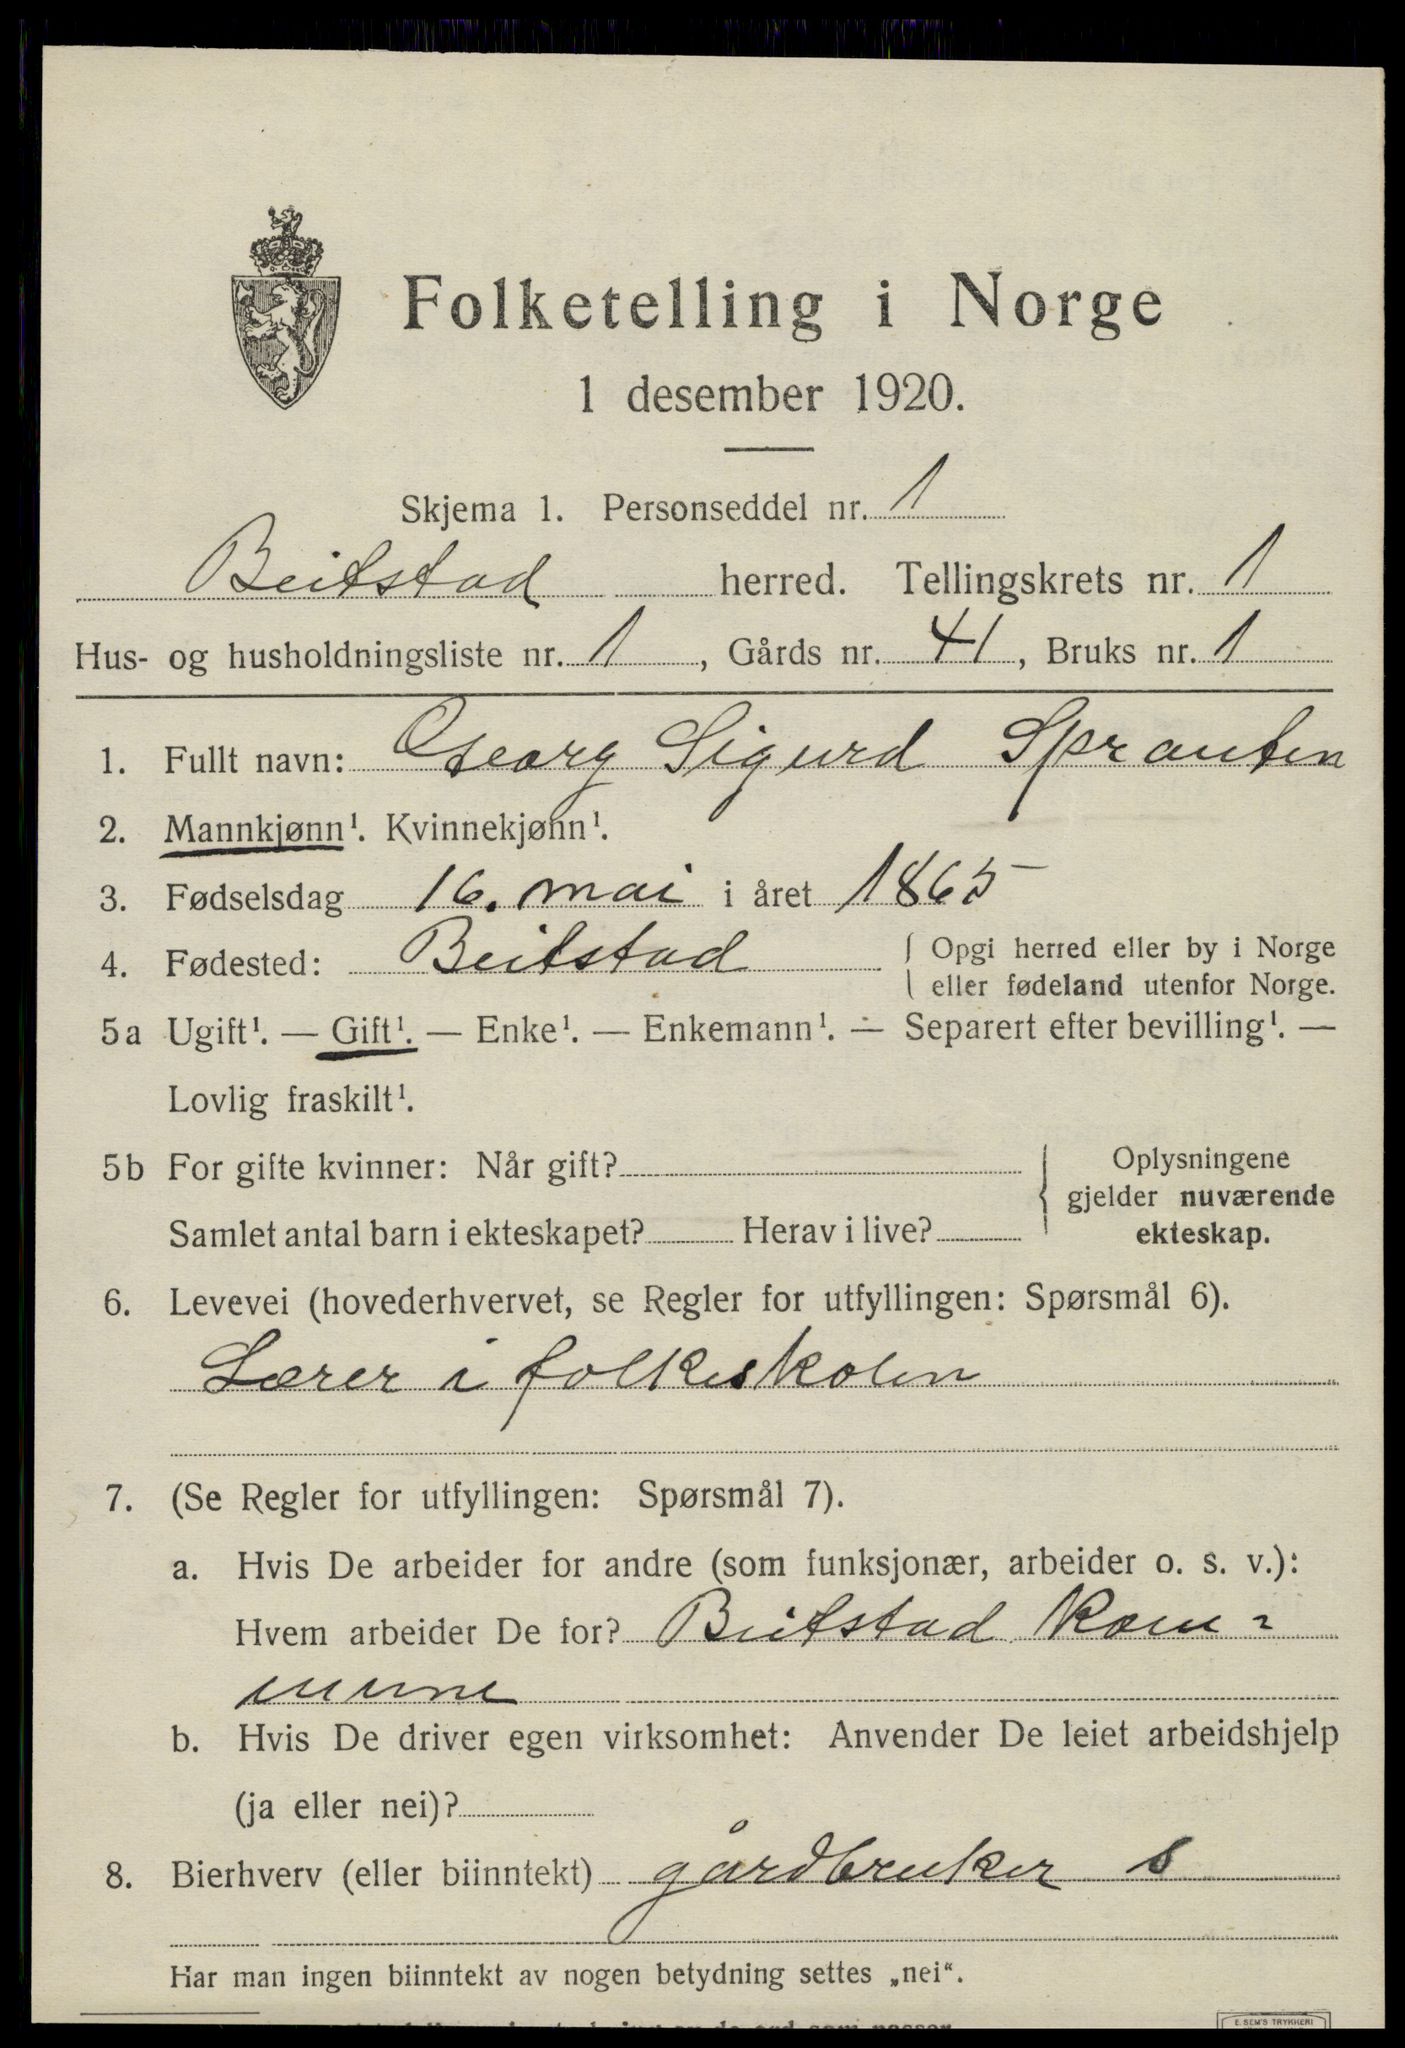 Folketelling i Norge
1 desember 1920.
Skjema 1. Personseddel nr. 1
Beitstad herred. Tellingskrets nr. 1
Hus- og husholdningsliste nr. 1, Gårds nr. 41, Bruks nr. 1
1. Fullt navn: Georg Sigurd Sprauten
2. Mannkjønn¹. Kvinnekjønn¹.
3. Fødselsdag 16. mai i året 1865
4. Fødested: Beitstad { Opgi herred eller by i Norge
eller fødeland utenfor Norge.
5a Ugift¹. — Gift¹. — Enke¹. — Enkemann¹. — Separert efter bevilling¹. —
Lovlig fraskilt¹.
5b For gifte kvinner: Når gift? { Oplysningene
gjelder nuværende
Samlet antal barn i ekteskapet? Herav i live? ekteskap.
6. Levevei (hovederhvervet, se Regler for utfyllingen: Spørsmål 6).
Lærer i folkeskolen
7. (Se Regler for utfyllingen: Spørsmål 7).
a. Hvis De arbeider for andre (som funksjonær, arbeider o. s. v.):
Hvem arbeider De for? Beitstad kom=
mune
b. Hvis De driver egen virksomhet: Anvender De leiet arbeidshjelp
(ja eller nei)?
8. Bierhverv (eller biinntekt) gårdbruker s
Har man ingen biinntekt av nogen betydning settes „nei“.
E. SEM'S TRYKKERI